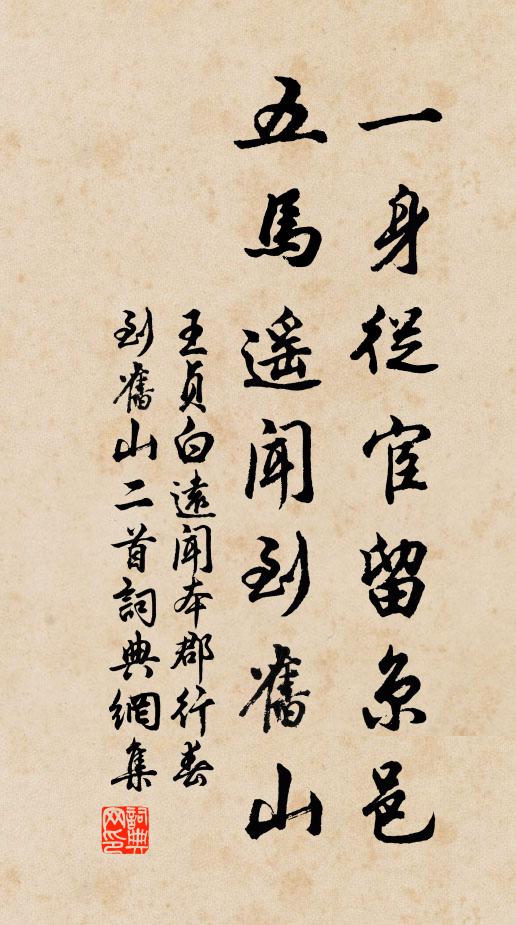 一身從宦留京邑
五馬遥聞到舊山
王貞白遠聞本郡行春
到舊山二首詞典網集
詞典
网印